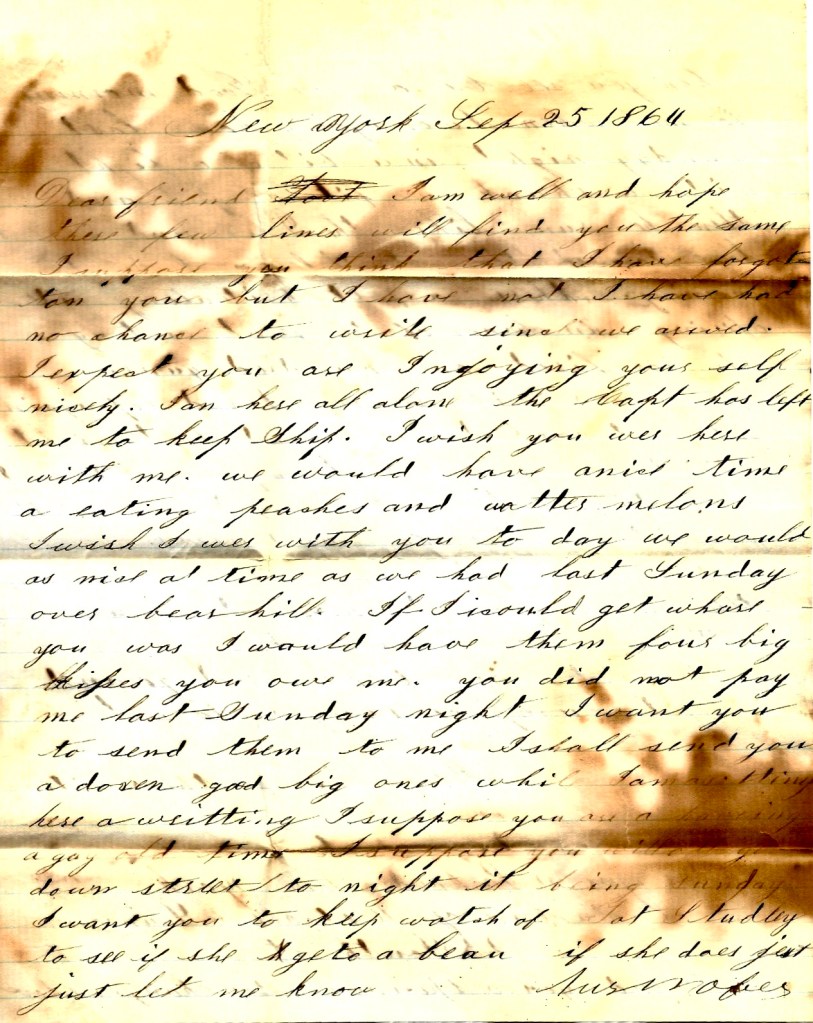 New York Sep 25 1864
Dear friend I am well and hope
these few lines will find you the same
I suppose you think that I have forgot
ton you but I have not I have had
no chance to write since we arived.
I expect you are Injoying your self
nicely. I an here all alone the Capt has left
me to keep Ship. I wish you wer here
with me. we would have a nice time
a eating peaches and watter melons
I wish I wer with you to day we would
as nise a time as we had last Sunday
over bear hill. If I could get whare
you was I would have them four big
kisses you owe me. you did not pay
me last Sunday night I want you
to send them to me I shall send you
a dozen good big ones whil I am sitting
here a writting I suppose you are a haveing
a gay old time I suppose you will
down street to night it being sunday
I want you to keep watch of Studley
to see if she gets a beau if she does jest
just let me know